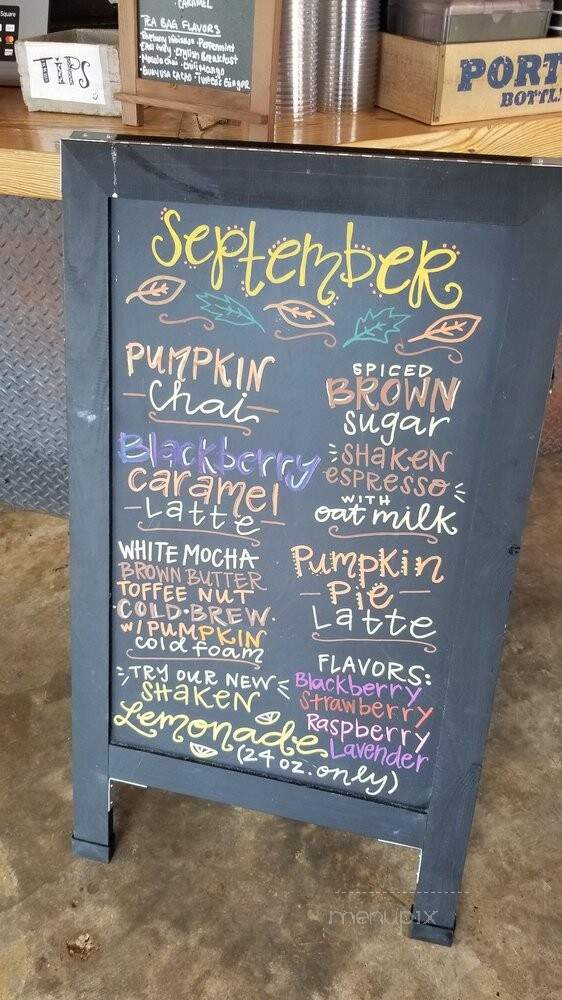 Square
TIPS
CARAMEL
TEA BAG FLAVORS
Peppermint
Earl Grey • English Breakfast
Masala chai • Chili Mango
PORT
BOTTL
September
PUMPKIN
chai
Blackberry
caramel
Latte
WHITE MOCHA
BROWN BUTTER
TOFFEE NUT
COLD BREW
w/ PUMPKIN
cold foam
SPICED
BROWN
sugar
SHAKEN
espresso
WITH
oat milk
Pumpkin
Pie
Latte
TRY OUR NEW
SHAKEN
Lemonade
(24 oz. only)
FLAVORS:
Blackberry
Strawberry
Raspberry
Lavender
menupix